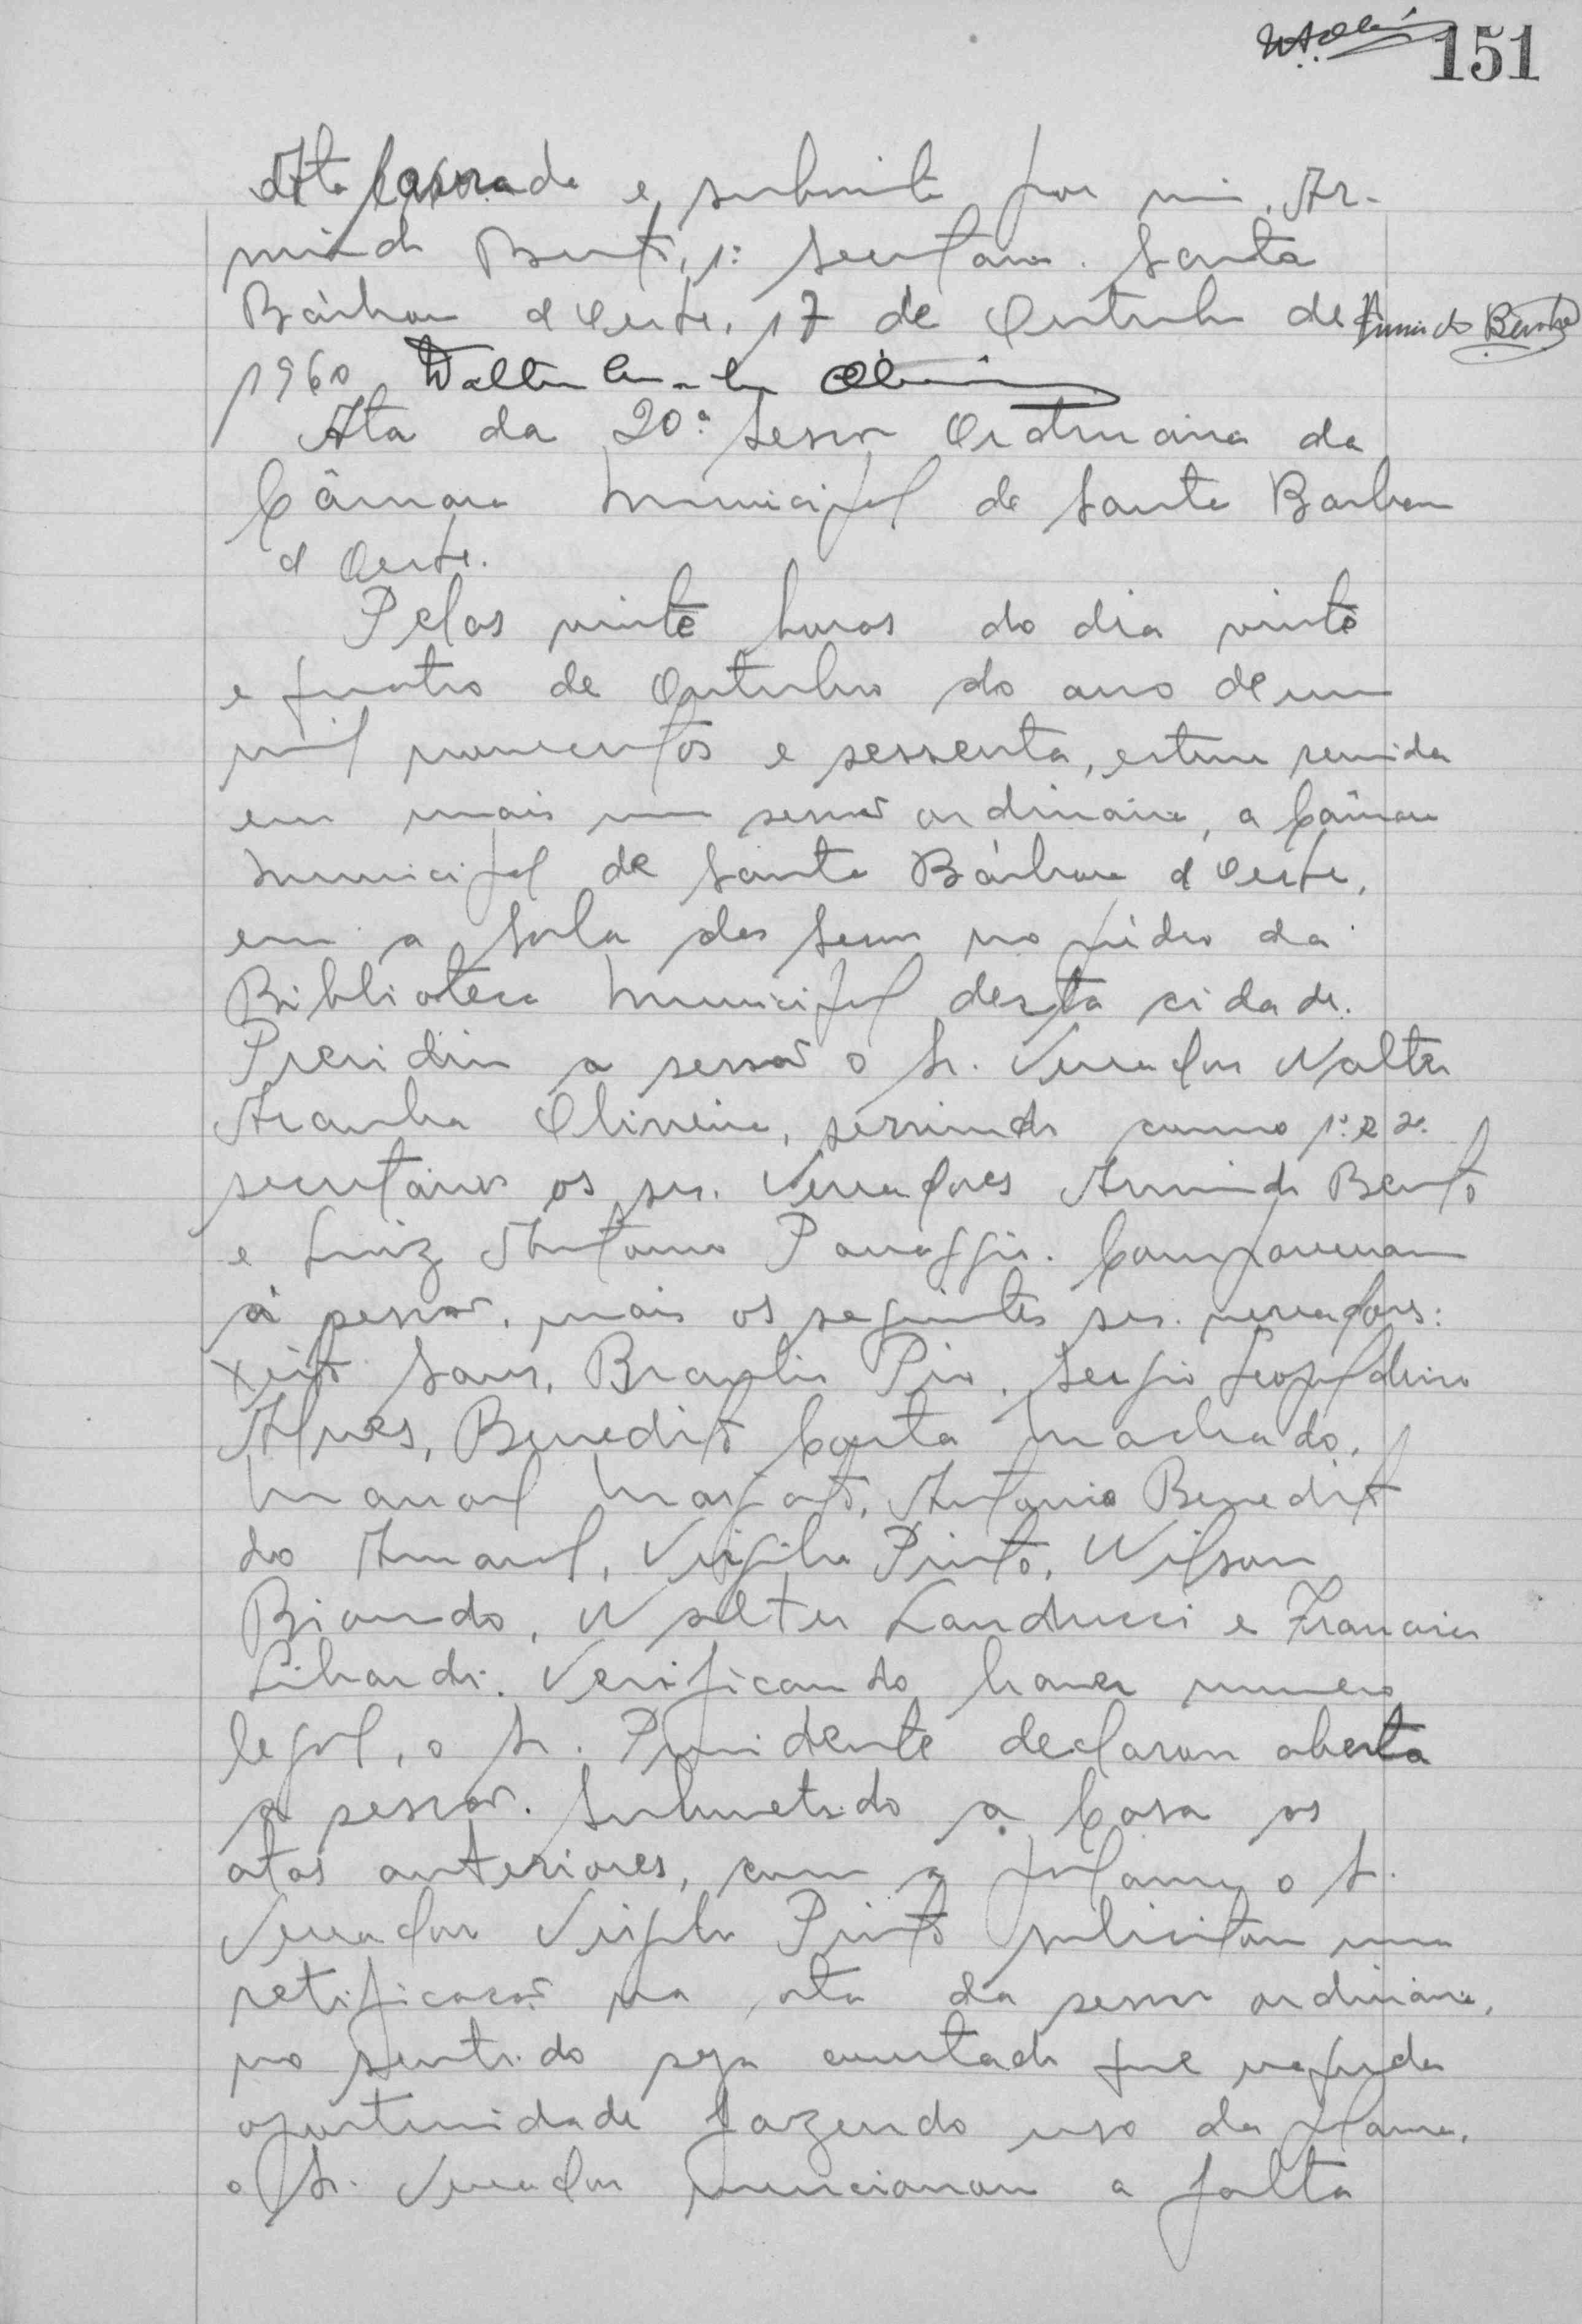 151
Ata lavrada e subscrita por mim, Ar-
mindo Bento, 1º Secretario. Santa
Bárbara d'Oeste, 17 de Outubro de Armindo Bento
1960 Walter Aranha Oliveira
Ata da 20ª Sessão Ordinaria da
Câmara Municipal de Santa Barbara
d'Oeste.
Pelas vinte horas do dia vinte
e quatro de Outubro do ano de um
mil novecentos e sessenta, esteve reunida
em mais uma sessão ordinaria, a Câmara
Municipal de Santa Bárbara d'Oeste,
em a sala das Sessões no prédio da
Biblioteca Municipal desta cidade.
Presidiu a sessão o Sr. Vereador Walter
Aranha Oliveira, servindo como 1º e 2º
secretários os srs. Vereadores Armindo Bento
e Luiz Antonio Panaggio. Compareceram
á sessão, mais os seguintes srs. vereadores:
Xisto Braulio Pio, Sergio Leopoldino
Alves, Benedito Costa Machado,
Manoel Antonio Benedito
do Amaral, Virgilio Pinto, Wilson
Biondo, Walter Landucci e Francisco
Libardi. Verificando haver numero
legal, o Sr. Presidente declarou aberta
a sessão. Submetido a Casa as
atas anteriores, com a palavra o Sr.
Vereador Virgilio Pinto solicitou uma
retificação na ata da sessão ordinaria,
no sentido seja constado que naquela
oportunidade fazendo uso da palavra,
o Sr. Vereador mencionou a falta